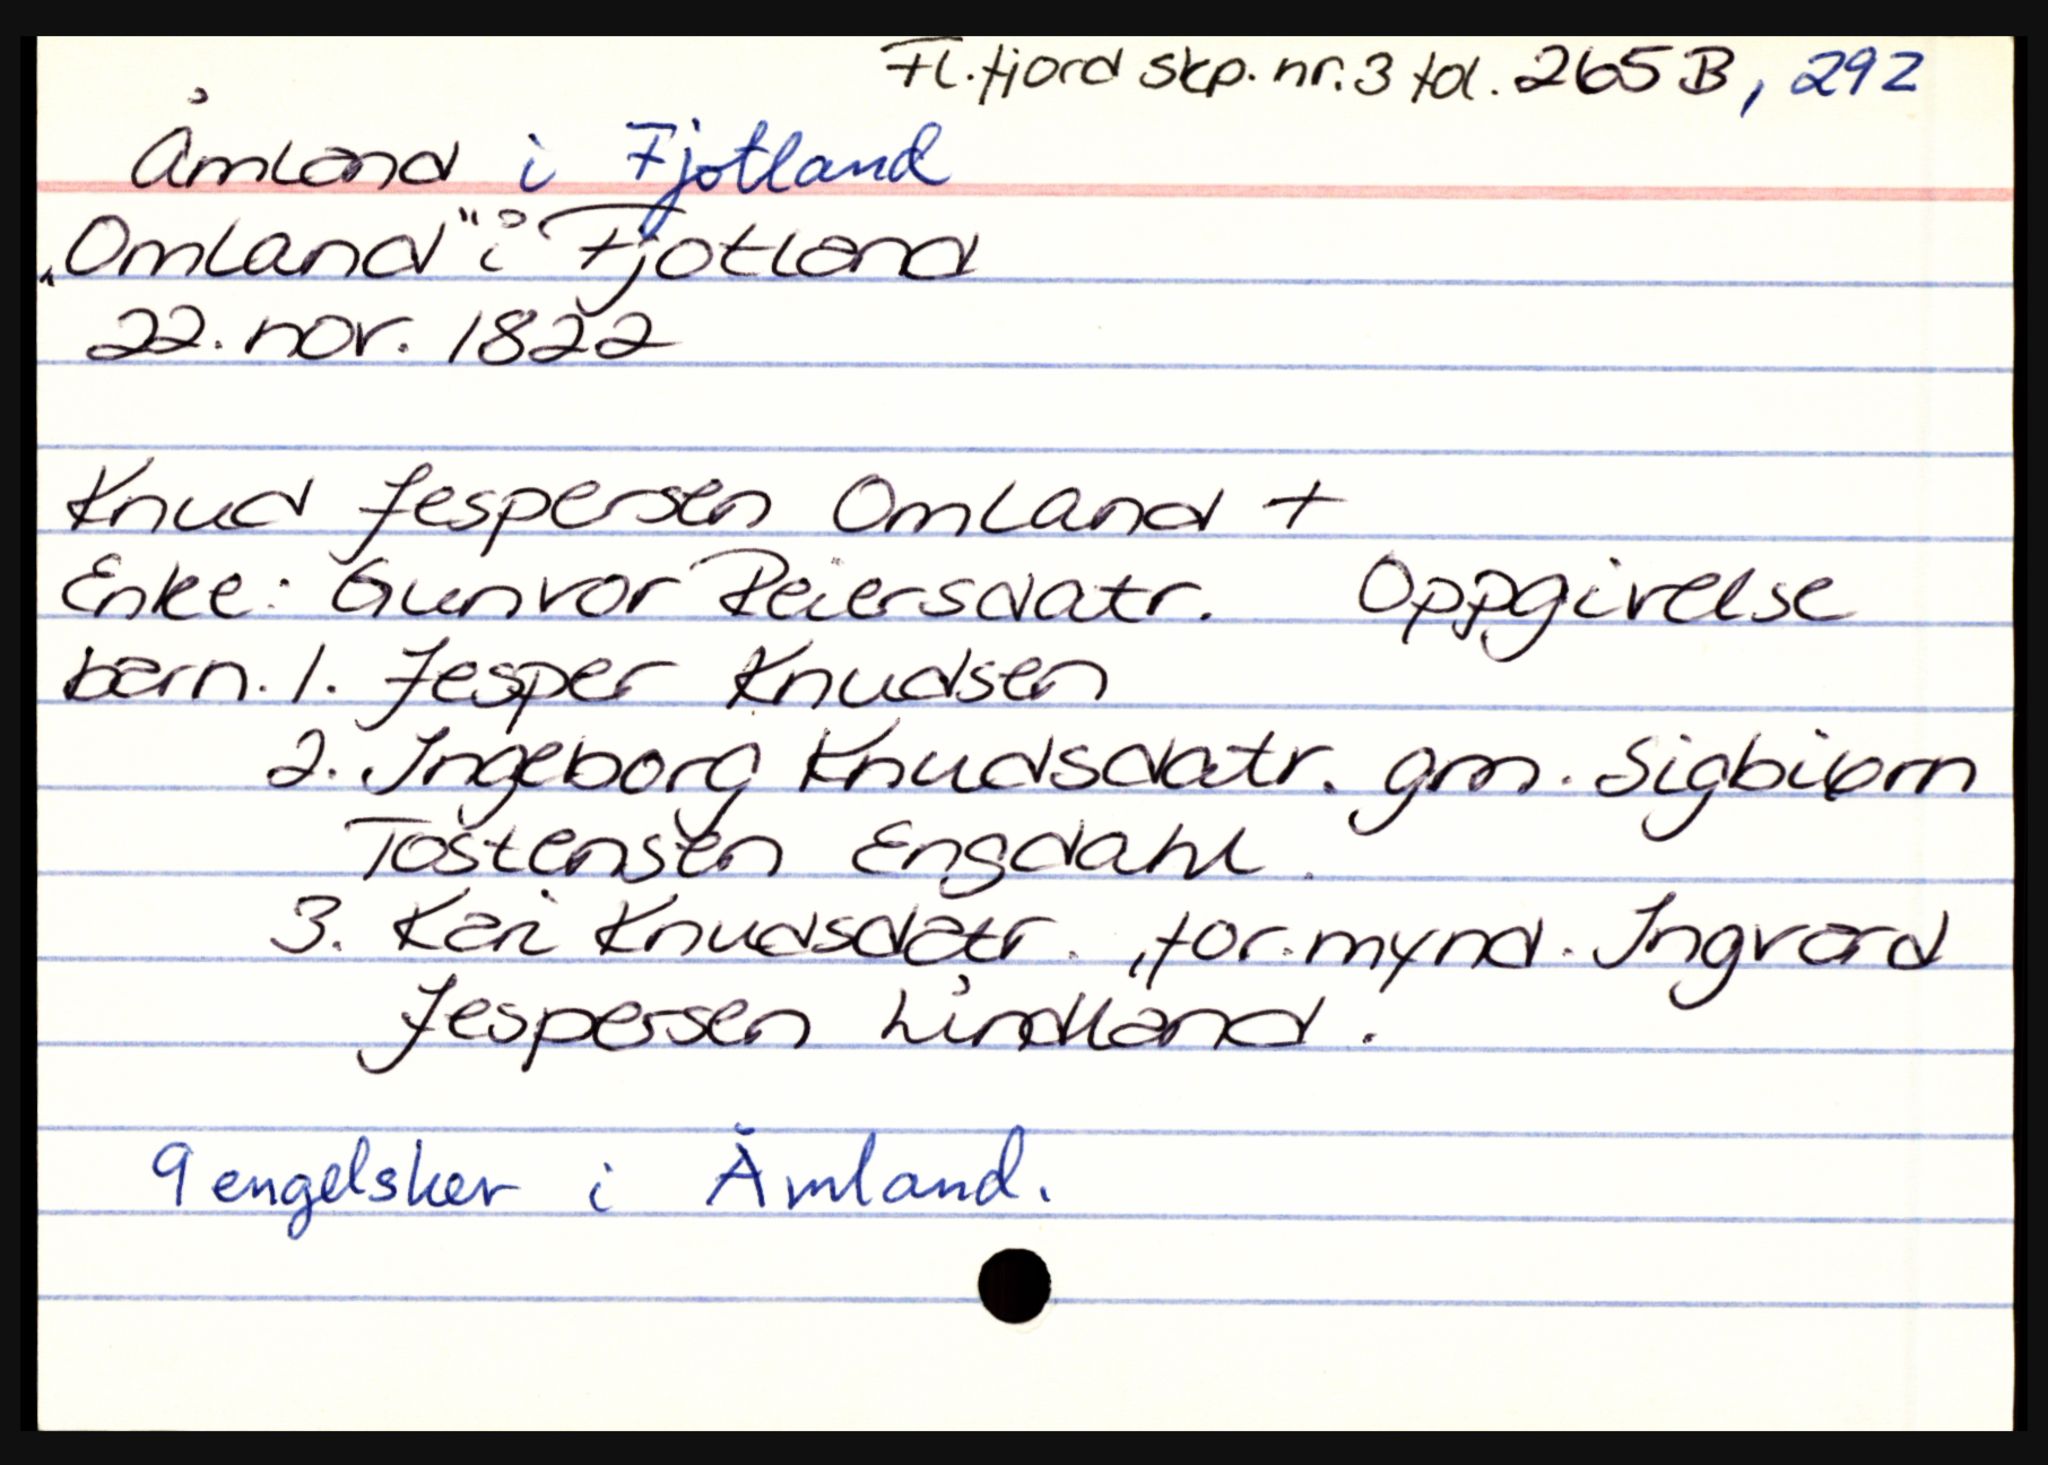 Fl.fjord skp. nr. 3 fol. 265 B, 292
Åmland i Fjotland
„Omland" i Fjotland
22. nov. 1822
Knud Jespersen Omland +
Enke: Gunvor Reiersdatr. Oppgivelse
barn. 1. Jesper Knudsen
2. Ingeborg Knudsdatr. gm. Sigbiørn
Tostensen Engdahl.
3. Kari Knudsdatr., for.mynd. Ingvard
Jespersen Lindland.
9 engelsker i Åmland.